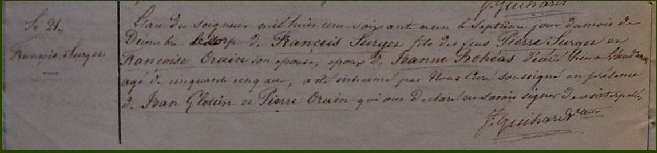 J. Guihard
S. 21.
François Surger
L'an du seigneur mil huit cent soixante le septième jour du mois de
Décembre le corps de François Surger fils des feus Pierre Surger et
Françoise Orain son épouse, époux de Jeanne Bohéas décédé hier
agé de cinquante cinq ans, a été inhumé par Nous curé soussigné en présence
de Jean Glotin et Pierre Orain qui ont déclaré ne savoir signer de ce interpellés
J. Guihard